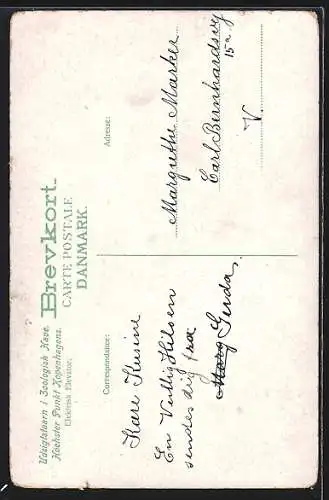 Udsigtstaarn i Zoologisk Have.
Höchster Punkt Kopenhagens.
Elektrisk Elevator.
Brevkort.
CARTE POSTALE
DANMARK.
Correspondance:
Kære Kusine
En Venlig Hilsen
sendes dig fra
Marg Gerda,
Adresse:
Margrethe Marker
Carl Bernhardsvej
15 a
V.